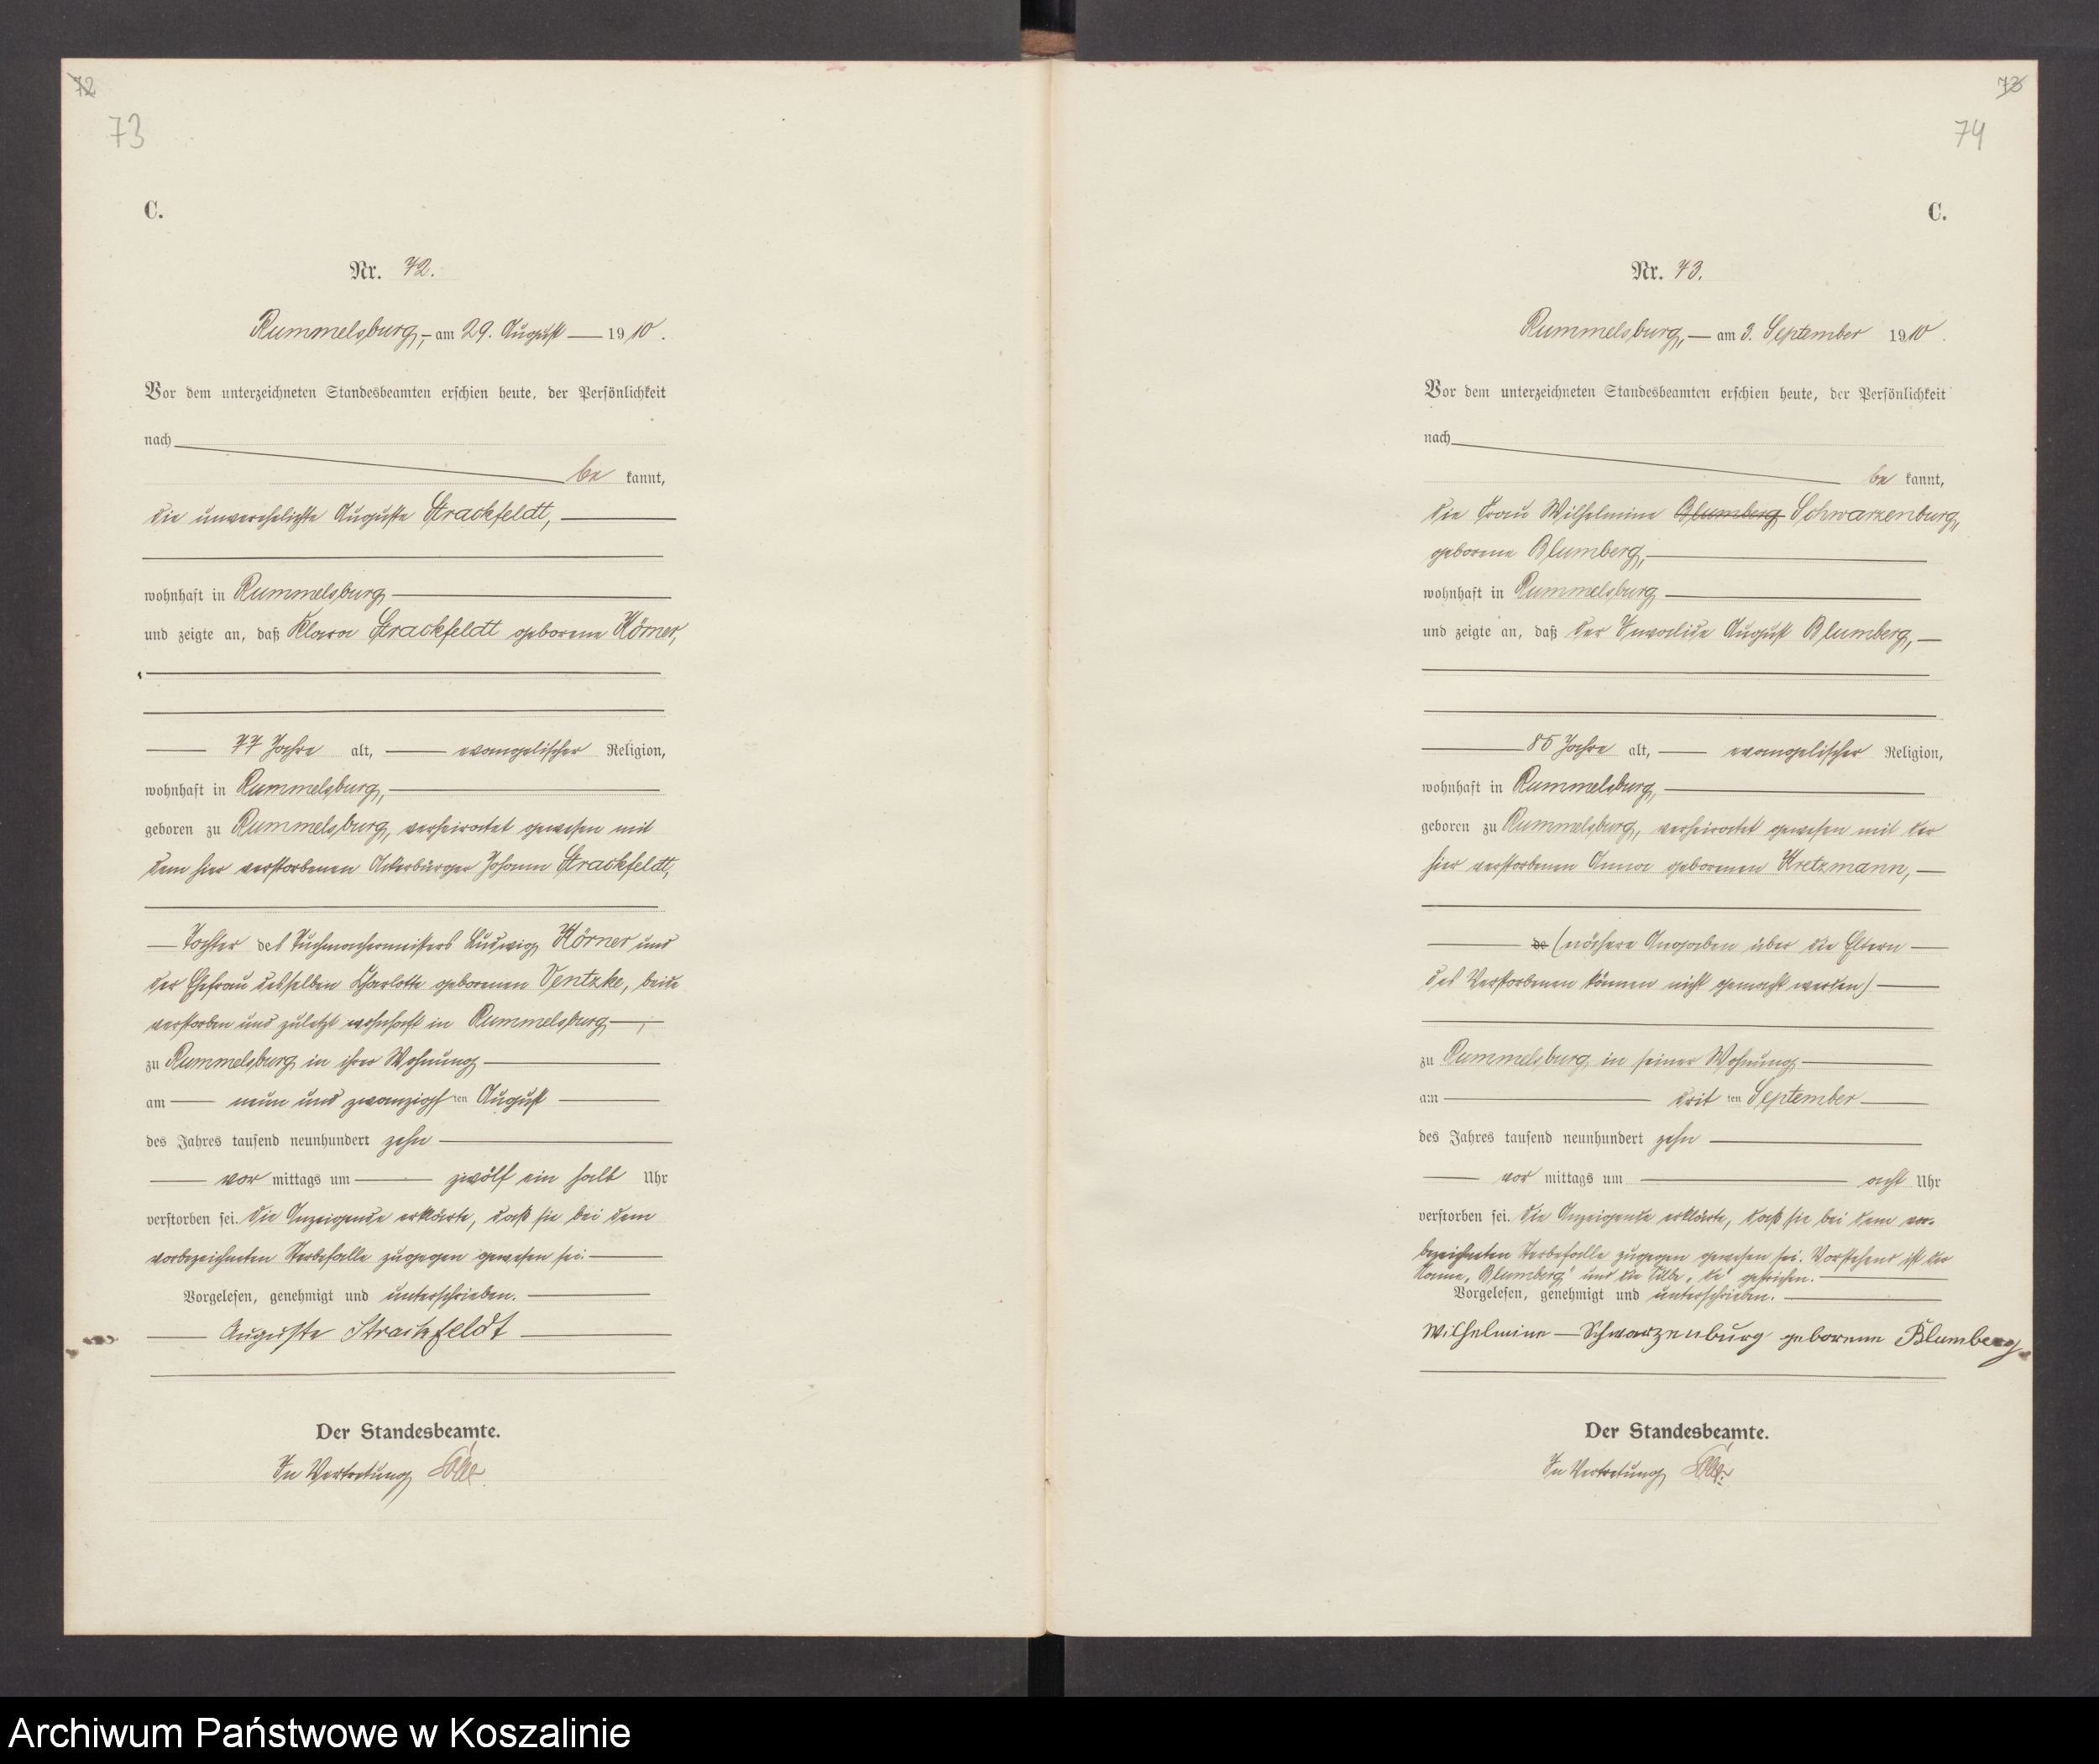 72
73
C.
Nr. 72.
Rummelsburg, am 29. August 1910.
Vor dem unterzeichneten Standesbeamten erschien heute, der Persönlichkeit
nach
be kannt,
die unverehelichte Auguste Strackfeldt,
wohnhaft in Rummelsburg
und zeigte an, daß Klara Strackfeldt geborene Körner,
77 Jahre alt, evangelischer Religion,
wohnhaft in Rummelsburg,
geboren zu Rummelsburg, verheiratet gewesen mit
dem hier verstorbenen Ackerbürger Johann Strackfeldt,
Tochter des Tuchmachermeisters Ludwig Körner und
der Ehefrau desselben Charlotte geborenen Ventzke, beide
verstorben und zuletzt wohnhaft in Rummelsburg,
zu Rummelsburg in ihrer Wohnung
am neun und zwanzigsten August
des Jahres tausend neunhundert zehn
vor mittags um zwölf ein halb Uhr
verstorben sei. Die Anzeigende erklärte, daß sie bei dem
vorbezeichneten Sterbefalle zugegen gewesen sei.
Vorgelesen, genehmigt und unterschrieben.
Auguste Strackfeldt
Der Standesbeamte.
In Vertretung
73
74
C.
Nr. 73.
Rummelsburg, am 3. September 1910.
Vor dem unterzeichneten Standesbeamten erschien heute, der Persönlichkeit
nach
be kannt,
die Frau Wilhelmine Blumberg Schwarzenburg,
geborene Blumberg,
wohnhaft in Rummelsburg
und zeigte an, daß der Invalide August Blumberg,
85 Jahre alt, evangelischer Religion,
wohnhaft in Rummelsburg,
geboren zu Rummelsburg, verheiratet gewesen mit der
hier verstorbenen Anna geborenen Kretzmann,
de (nähere Angaben über die Eltern
des Verstorbenen können nicht gemacht werden)
zu Rummelsburg in seiner Wohnung
am dritten September
des Jahres tausend neunhundert zehn
vor mittags um acht Uhr
verstorben sei. Die Anzeigende erklärte, daß sie bei dem vor-
bezeichneten Sterbefalle zugegen gewesen sei. Vorstehend ist der
Name „Blumberg" und die Silbe „de" gestrichen.
Vorgelesen, genehmigt und unterschrieben.
Wilhelmine Schwarzenburg geborene Blumberg
Der Standesbeamte.
In Vertretung
Archiwum Państwowe w Koszalinie